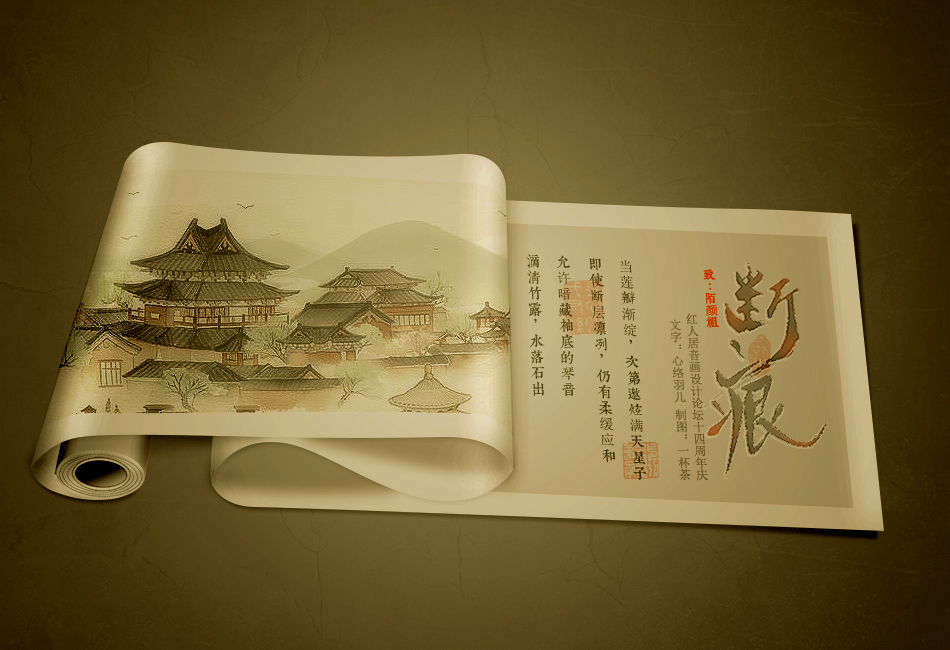 断痕
致：陌颜粗
红人居音画设计论坛十四周年庆
文字：心络羽儿 制图：一杯茶
当莲瓣渐绽，次第邀炫满天星子
即使断层凛冽，仍有柔缓应和
允许暗藏袖底的琴音
滴清竹露，水落石出